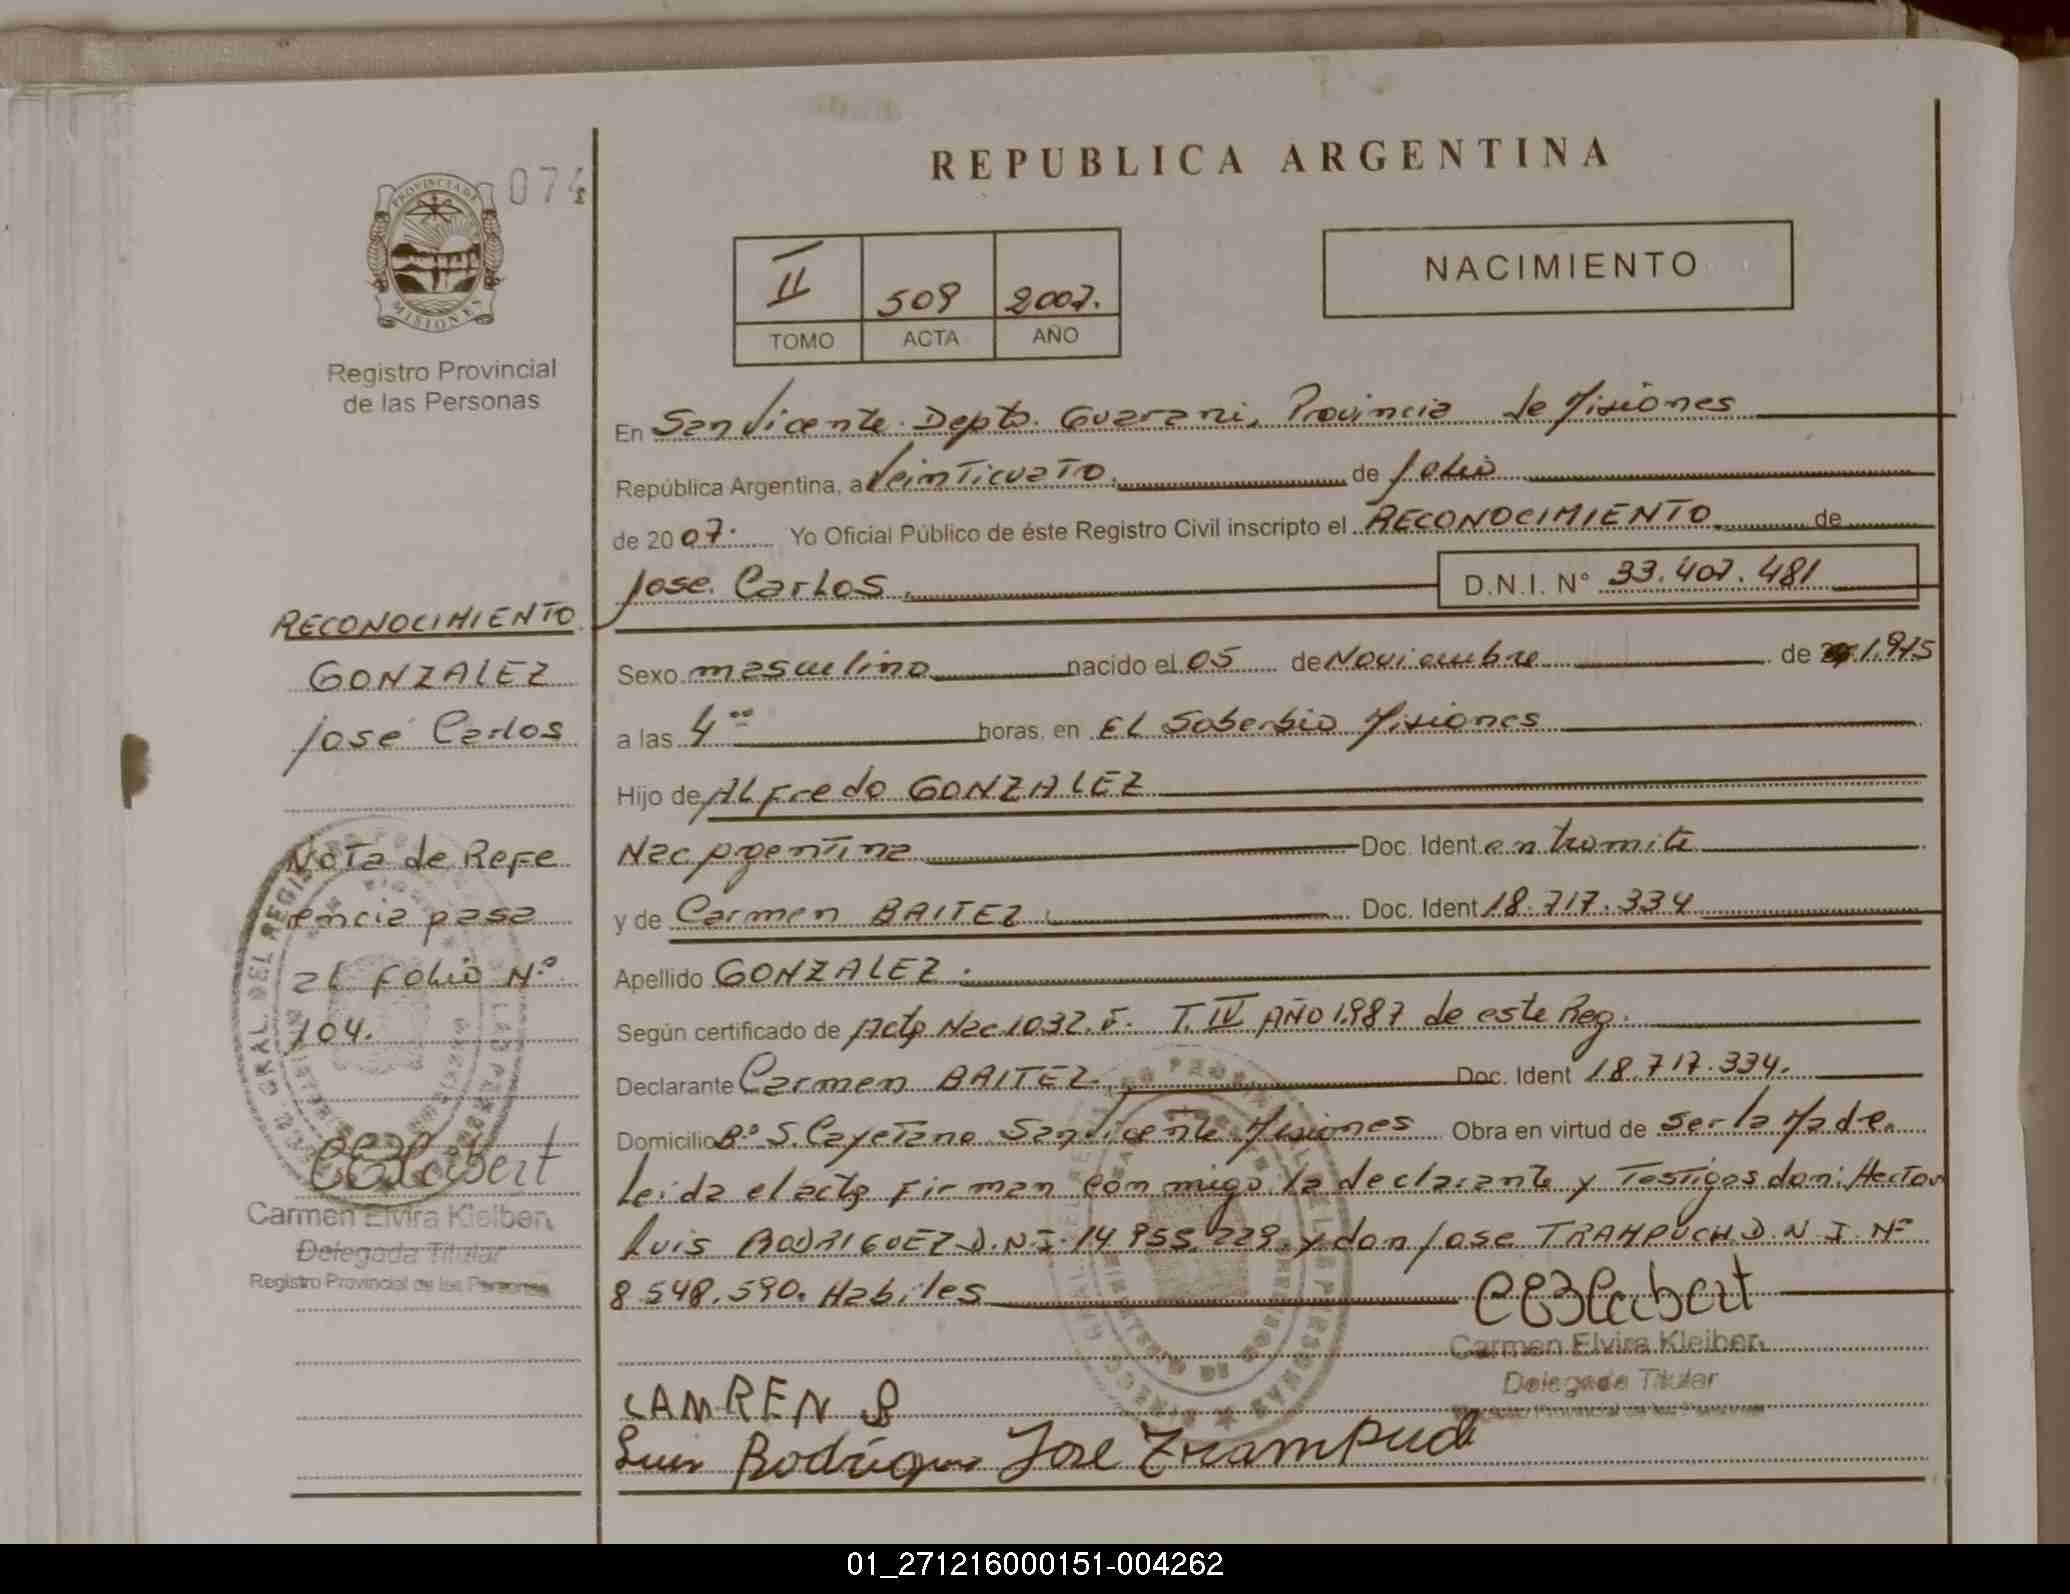 REPUBLICA ARGENTINA
074
PROVINCIA DE
MISIONES
Registro Provincial
de las Personas
II 509 2007.
TOMO ACTA AÑO
NACIMIENTO
En San Vicente. Depto. Guarani, Provincia de Misiones
República Argentina, a Veinticuato. de Julio
de 2007. Yo Oficial Público de éste Registro Civil inscripto el RECONOCIMIENTO de
Jose. Carlos. D.N.I. N° 33.407.481
RECONOCIMIENTO.
GONZALEZ
José Carlos
Nota de Refe
encia pasa
al folio N°
104.
Carmen Elvira Kleibert
Delegada Titular
Registro Provincial de las Personas
Sexo masculino nacido el 05 de Noviembre de
a las 4°° horas, en EL Soberbio Misiones
Hijo de ALfredo GONZALEZ
Nac Argentina Doc. Ident en tramite
y de Carmen BAITEZ. Doc. Ident 18.717.334
Apellido GONZALEZ.
Según certificado de Acta Nac 1032. T. IV AÑO 1987 de este Reg.
Declarante Carmen BAITEZ. Doc. Ident 18.717.334.
Domicilio B° S. Cayetano San Vicente Misiones Obra en virtud de ser la Madre.
Leida el acta Firman conmigo la declarante y Testigos don: Hector
Luis RODRIGUEZ D.N.I. 14.955.229. y don Jose TRAMPUCH D.N.I. N°
8.548.590. Habiles
Carmen Elvira Kleibert
Delegada Titular
Registro Provincial de las Personas
CAMREN B
Luis Rodriguez Jose Trampuch
01_271216000151-004262